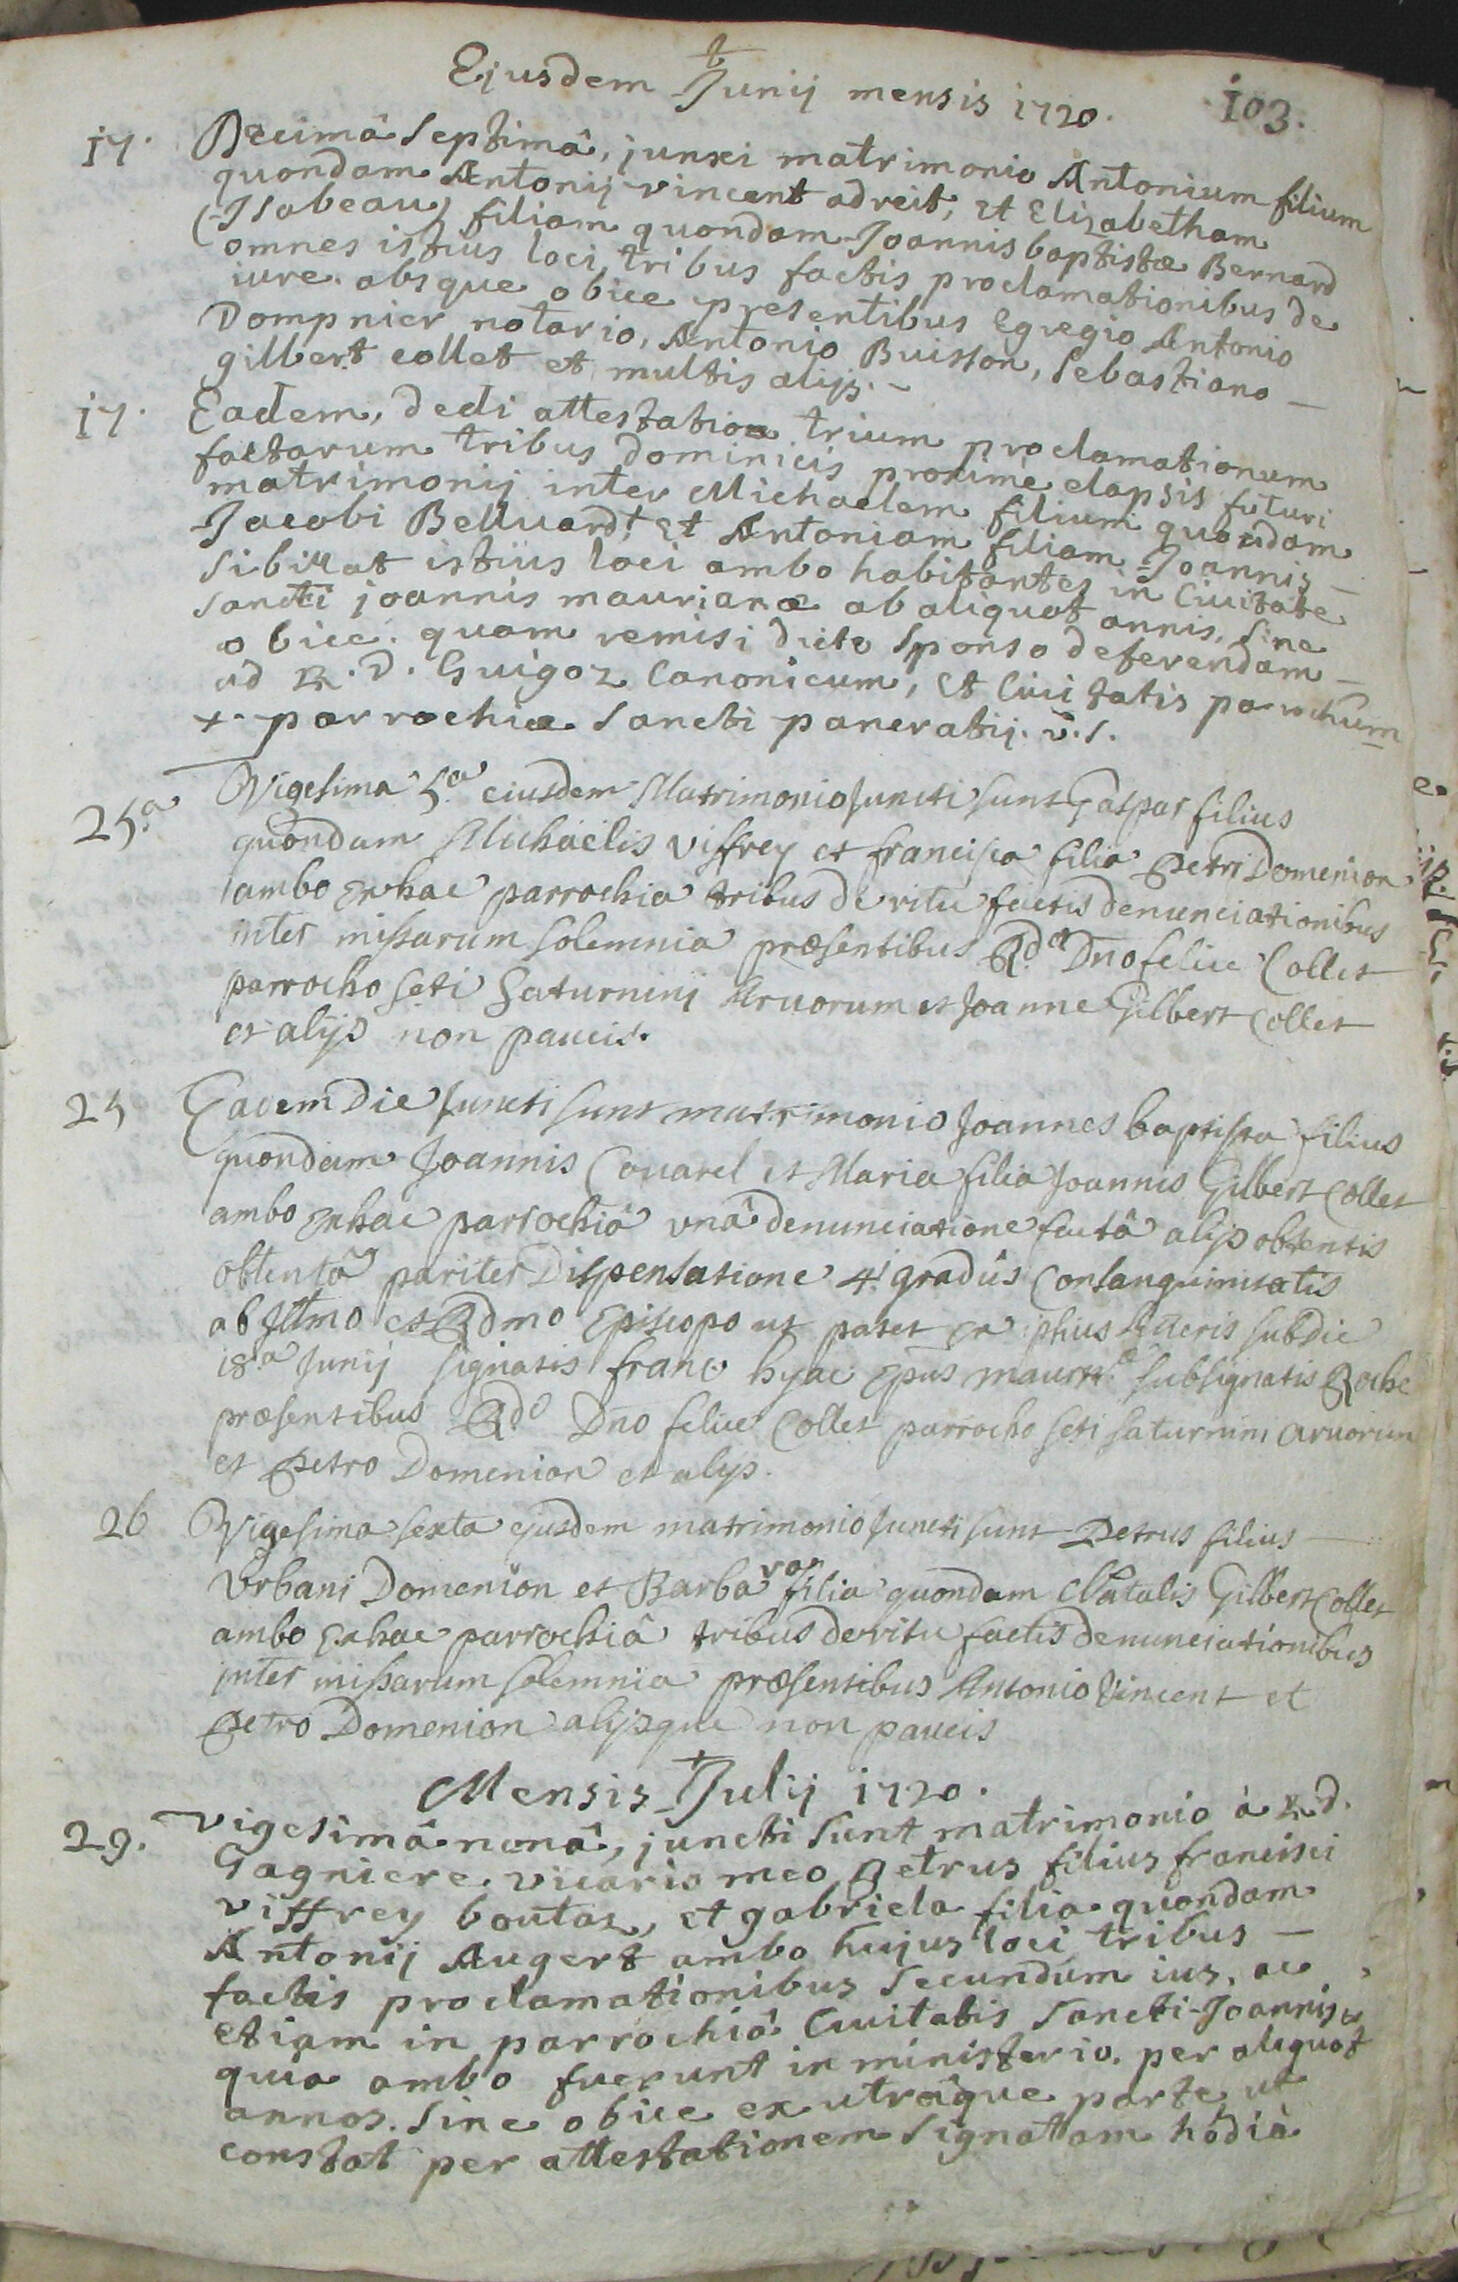 Ejusdem Junij mensis 1720. 103.
17. Decimâ Septimâ, junxi matrimonio Antonium filium
quondam Antonij vincent adreit, et Elizabetham
(Isabeau) filiam quondam Joannis baptistæ Bernard
omnes istius loci, tribus factis proclamationibus de
iure absque obice presentibus Egregio Antonio
Dompnier notario, Antonio Buisson, Sebastiano
gilbert collet et multis alijs.
17. Eadem, dedi attestation trium proclamationum
factarum tribus dominicis proximè elapsis futuri
matrimonij inter Michaelem filium quondam
Jacobi Belluard, et Antoniam filiam Joannis
Sibillat istius loci ambo habitantes in Civitate
sancti joannis maurianæ ab aliquot annis, sine
obice. quam remisi dicto Sponso deferendam
ad R. D. Guigoz Canonicum, et Civitatis parochum
+ parrochiæ Sancti pancratij. v. s.
25.a Vigesima 5.a eiusdem Matrimonio Juncti sunt Gaspar filius
quondam Michaëlis Viffrey et francisca filia Petri Domenion
ambo ex hac parrochia tribus de ritu factis denunciationibus
inter missarum solemnia præsentibus Rd. Dno felice Collet
parrocho scti Saturnini Aruorum et Joanne Gilbert Collet
et alijs non paucis.
25 Eadem Die Juncti sunt matrimonio Joannes baptista filius
quondam Joannis Couarel et Maria filia Joannis Gilbert Collet
ambo ex hac parrochiâ vnâ denunciatione factâ alijs obtentis
obtentâ pariter Dispensatione 4.i gradûs Consanguinitatis
ab Illmo et Rdmo Episcopo ut patet ex ipsius litteris sub die
18.a Junij signatis franc. hyac. Epûs maurn. subsignatis Roche
præsentibus Rdo Dno felice Collet parrocho scti saturnini aruorum
et Petro Domenion et alijs.
26 Vigesima sexta ejusdem matrimonio Juncti sunt Petrus filius
Vrbani Domenion et Barbara filia quondam Natalis Gilbert Collet
ambo ex hac parrochiâ tribus de ritu factis denunciationibus
inter missarum solemnia præsentibus Antonio Vincent et
Petro Domenion alijsque non paucis
Mensis Julij 1720.
29. Vigesimâ nonâ, juncti sunt matrimonio à R.d.
Gagniere vicario meo Petrus filius francisci
viffrey boutaz, et gabriela filia quondam
Antonij Augert ambo hujus loci tribus
factis proclamationibus secundùm ius, ac
etiam in parrochiâ Civitatis Sancti Joannis
quia ambo fuerunt in ministerio per aliquot
annos. Sine obice ex utrâque parte ut
constat per attestationem signatam hodiè